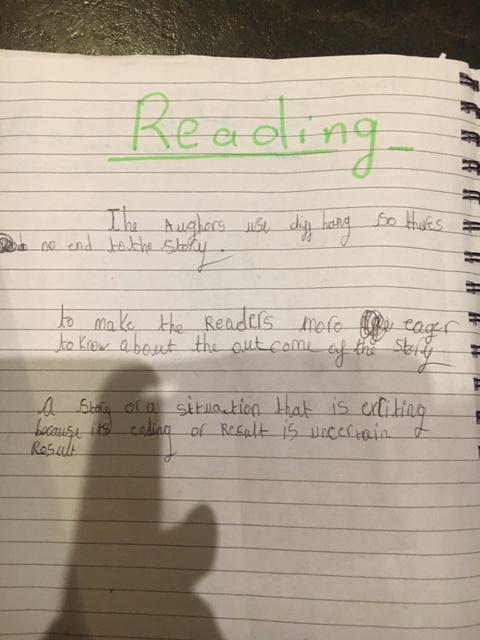 Reading
The Aughors use diff hang so theres
no end to the story.
to make the Readers more eager
to know about the out come of the story
A story or a situaction that is exciting
because its ending or Result is uncertain
Result